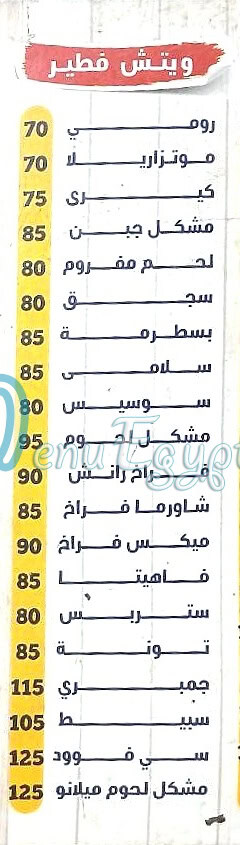 ويتش فطير
رومي 70
موتزاريلا 70
كيرى 75
مشكل جبن 85
لحم مفروم 80
سجق 80
بسطرمة 85
سلامى 85
سوسيس 80
مشكل لحوم 95
فراخ رانش 90
شاورما فراخ 85
ميكس فراخ 90
فاهيتا 85
ستربس 80
تونة 85
جمبري 115
سبيط 105
سي فوود 125
مشكل لحوم ميلانو 125
Menu Egypt